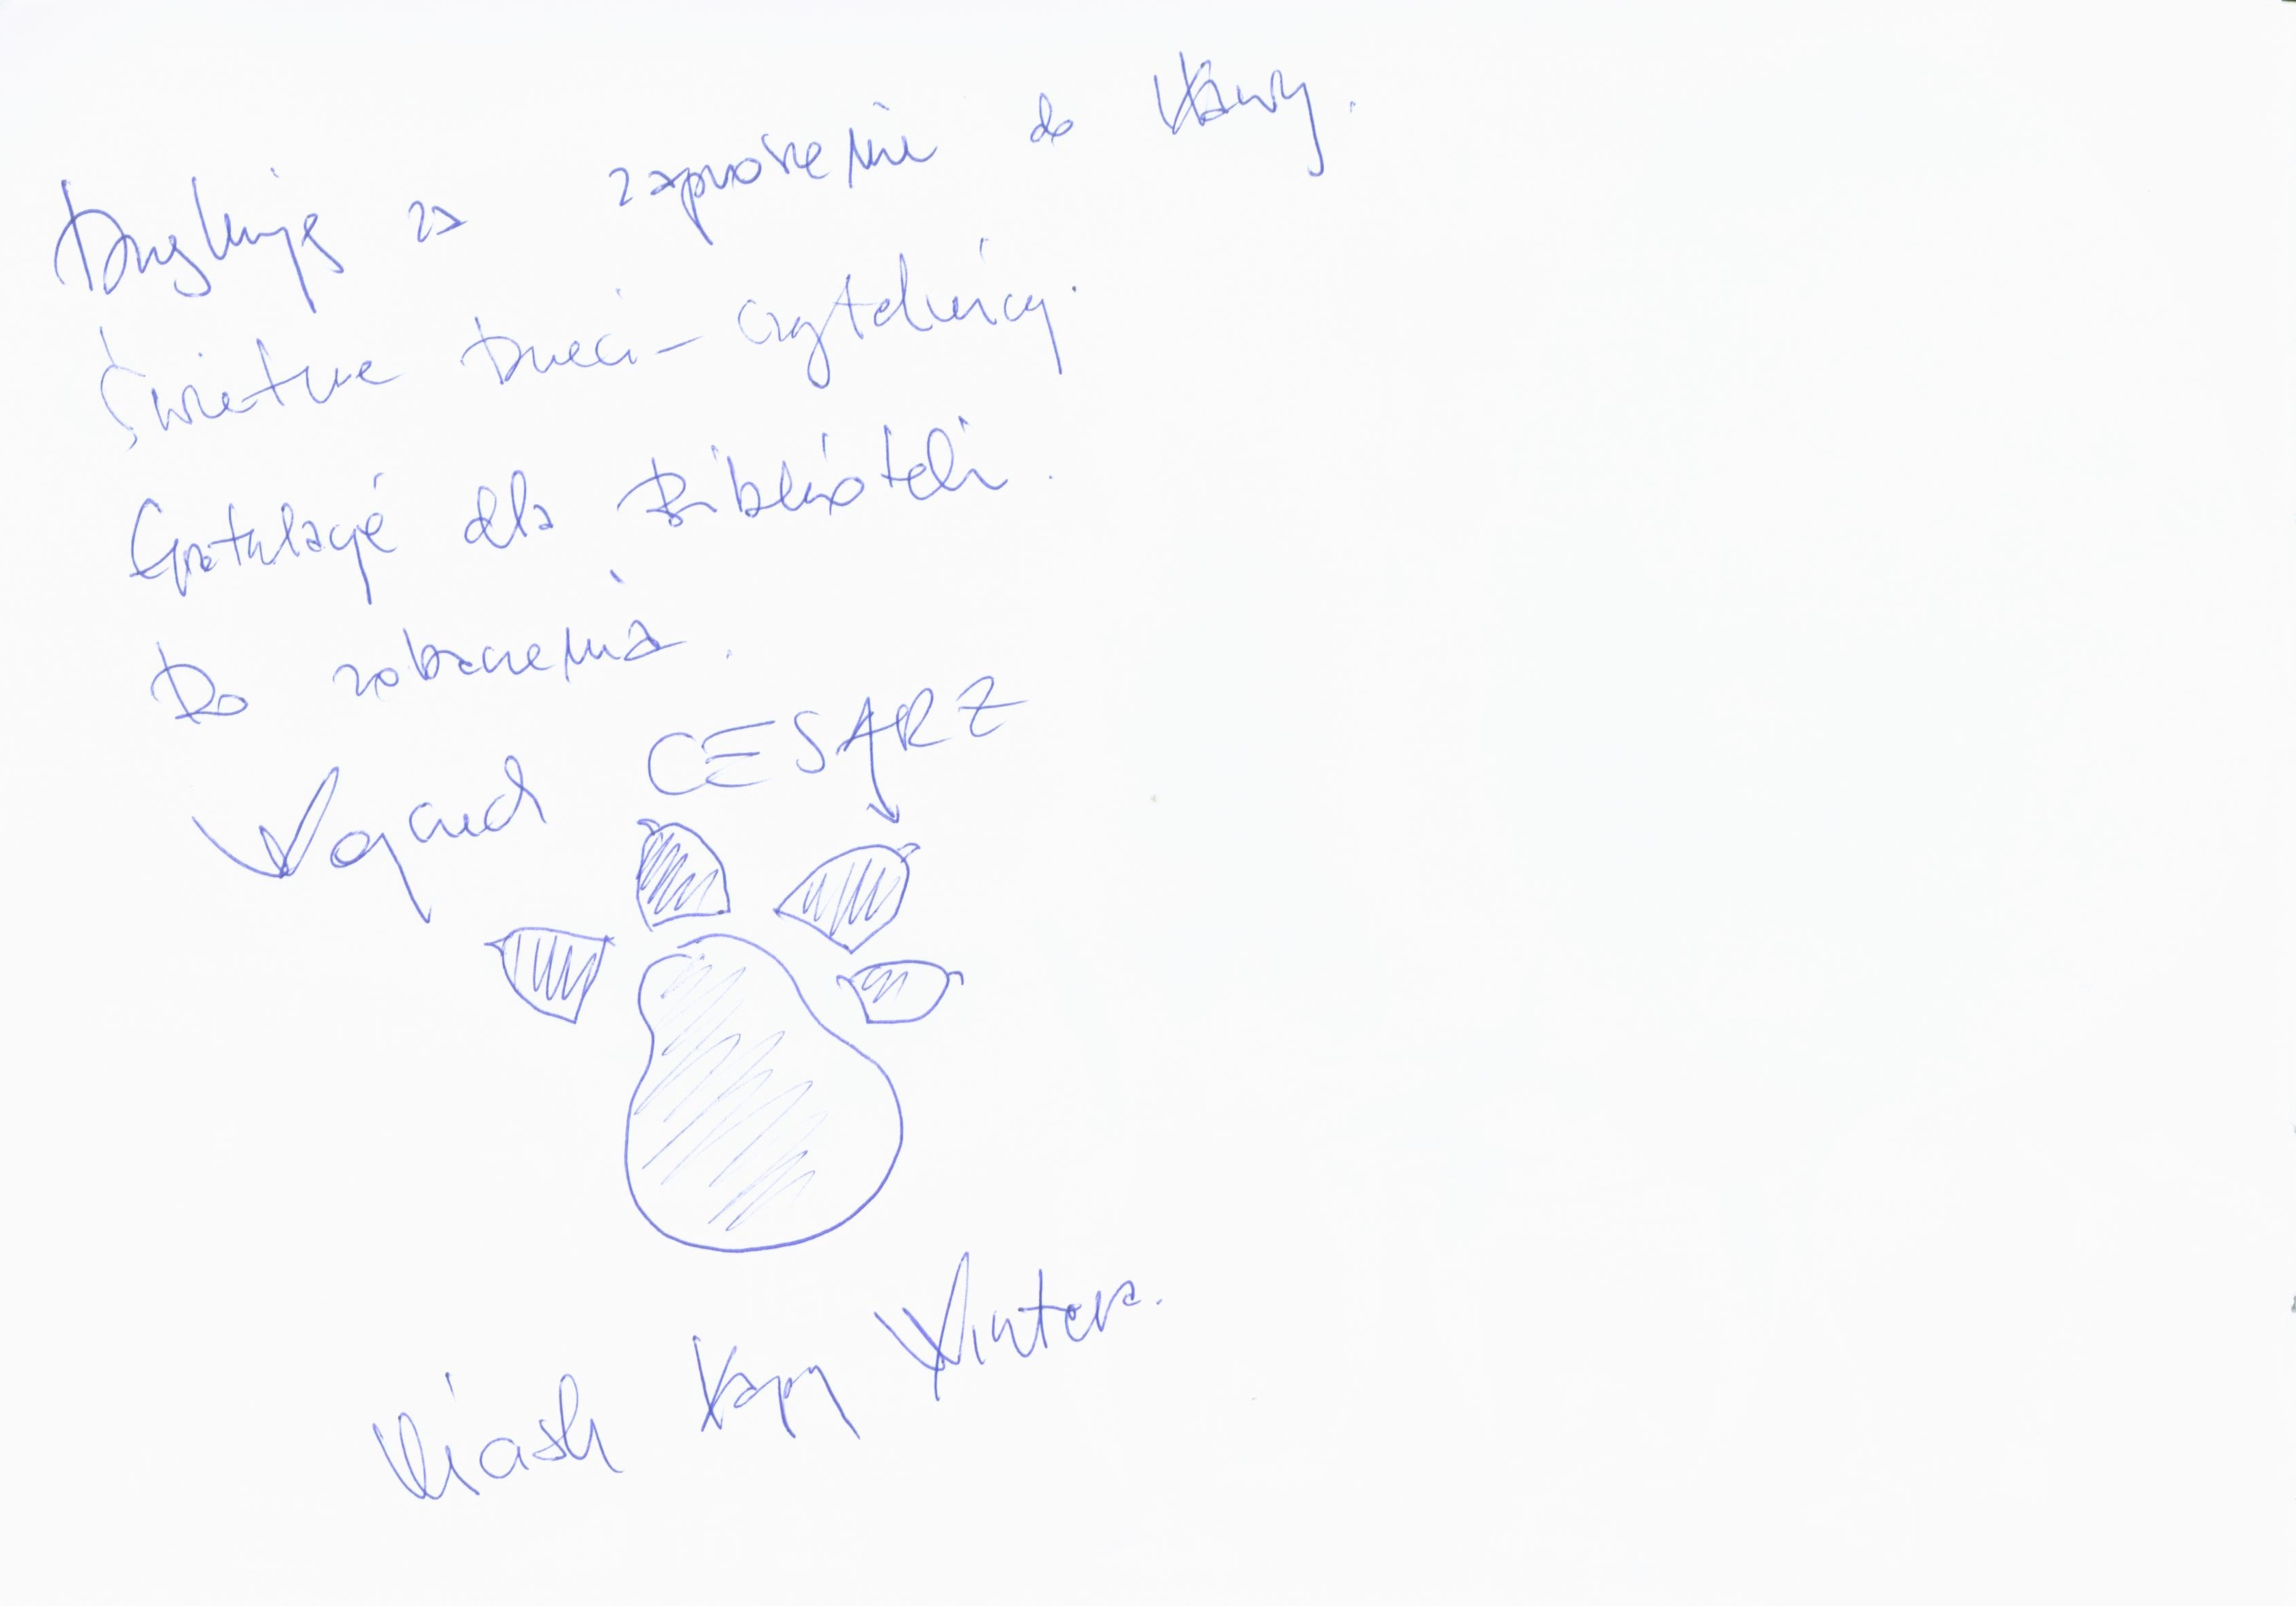 Dziękuję za zaproszenie do Iławy.
Świetne Dzieci - czytelnicy.
Gratulacje dla Biblioteki.
Do zobaczenia.
Wojciech CESARZ
Niech Żyją Wintera.